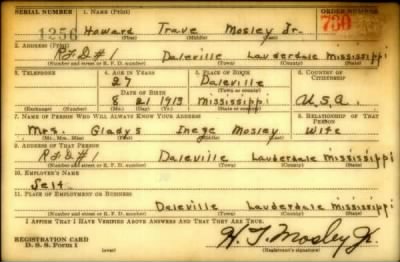 SERIAL NUMBER 1. NAME (Print) ORDER NUMBER
1256 Howard Trave Mosley Jr. 730
(First) (Middle) (Last)
2. ADDRESS (Print)
RFD#1 Daleville Lauderdale Mississippi
(Number and street or R. F. D. number) (Town) (County) (State)
3. TELEPHONE 4. AGE IN YEARS 5. PLACE OF BIRTH 6. COUNTRY OF CITIZENSHIP
27 Daleville
DATE OF BIRTH (Town or county)
8 21 1913 Mississippi U.S.A.
(Exchange) (Number) (Mo.) (Day) (Yr.) (State or country)
7. NAME OF PERSON WHO WILL ALWAYS KNOW YOUR ADDRESS 8. RELATIONSHIP OF THAT PERSON
Mrs. Gladys Mosley Wife
(Mr., Mrs., Miss) (First) (Middle) (Last)
9. ADDRESS OF THAT PERSON
RFD#1 Daleville Lauderdale Mississippi
(Number and street or R. F. D. number) (Town) (County) (State)
10. EMPLOYER'S NAME
Self
11. PLACE OF EMPLOYMENT OR BUSINESS
Daleville Lauderdale Mississippi
(Number and street or R. F. D. number) (Town) (County) (State)
I AFFIRM THAT I HAVE VERIFIED ABOVE ANSWERS AND THAT THEY ARE TRUE.
REGISTRATION CARD
D. S. S. Form 1 (over) H. T. Mosley Jr.
(Registrant's signature)